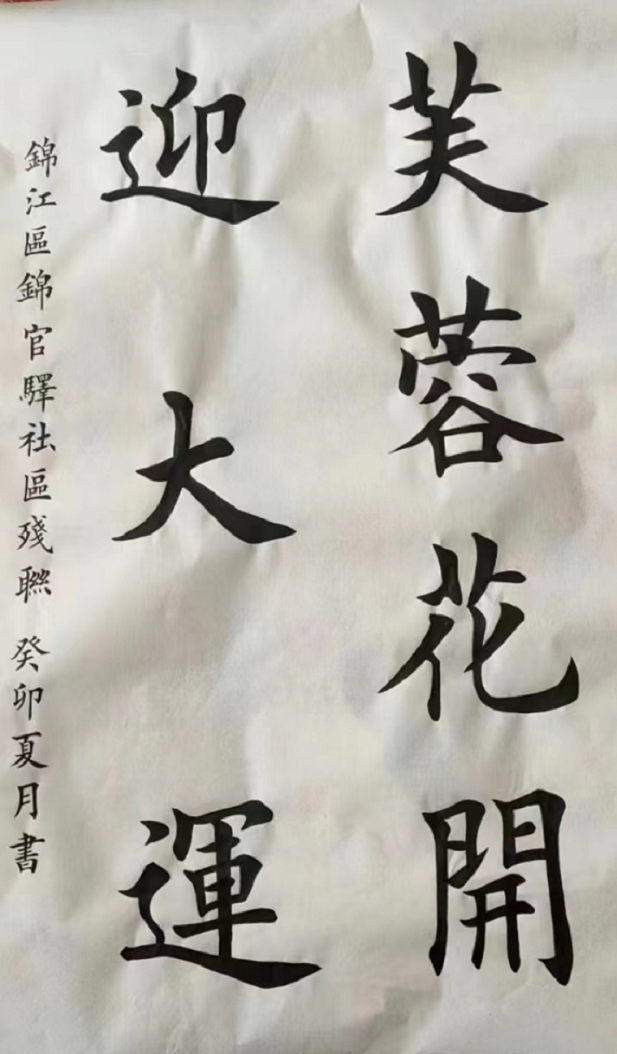 芙蓉花開
迎大運
錦江區錦官驛社區殘聯 癸卯夏月書